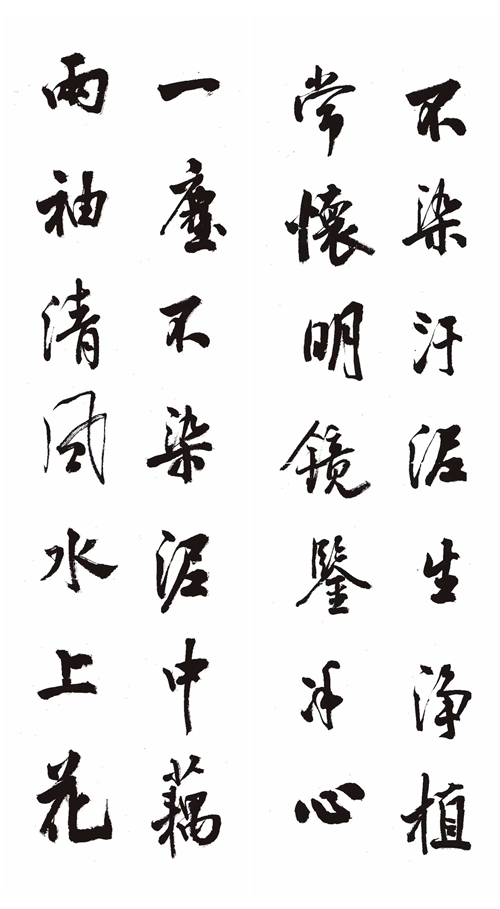 不染汙泥生浄植
常懷明鏡鑒冰心
一塵不染泥中藕
兩袖清風水上花